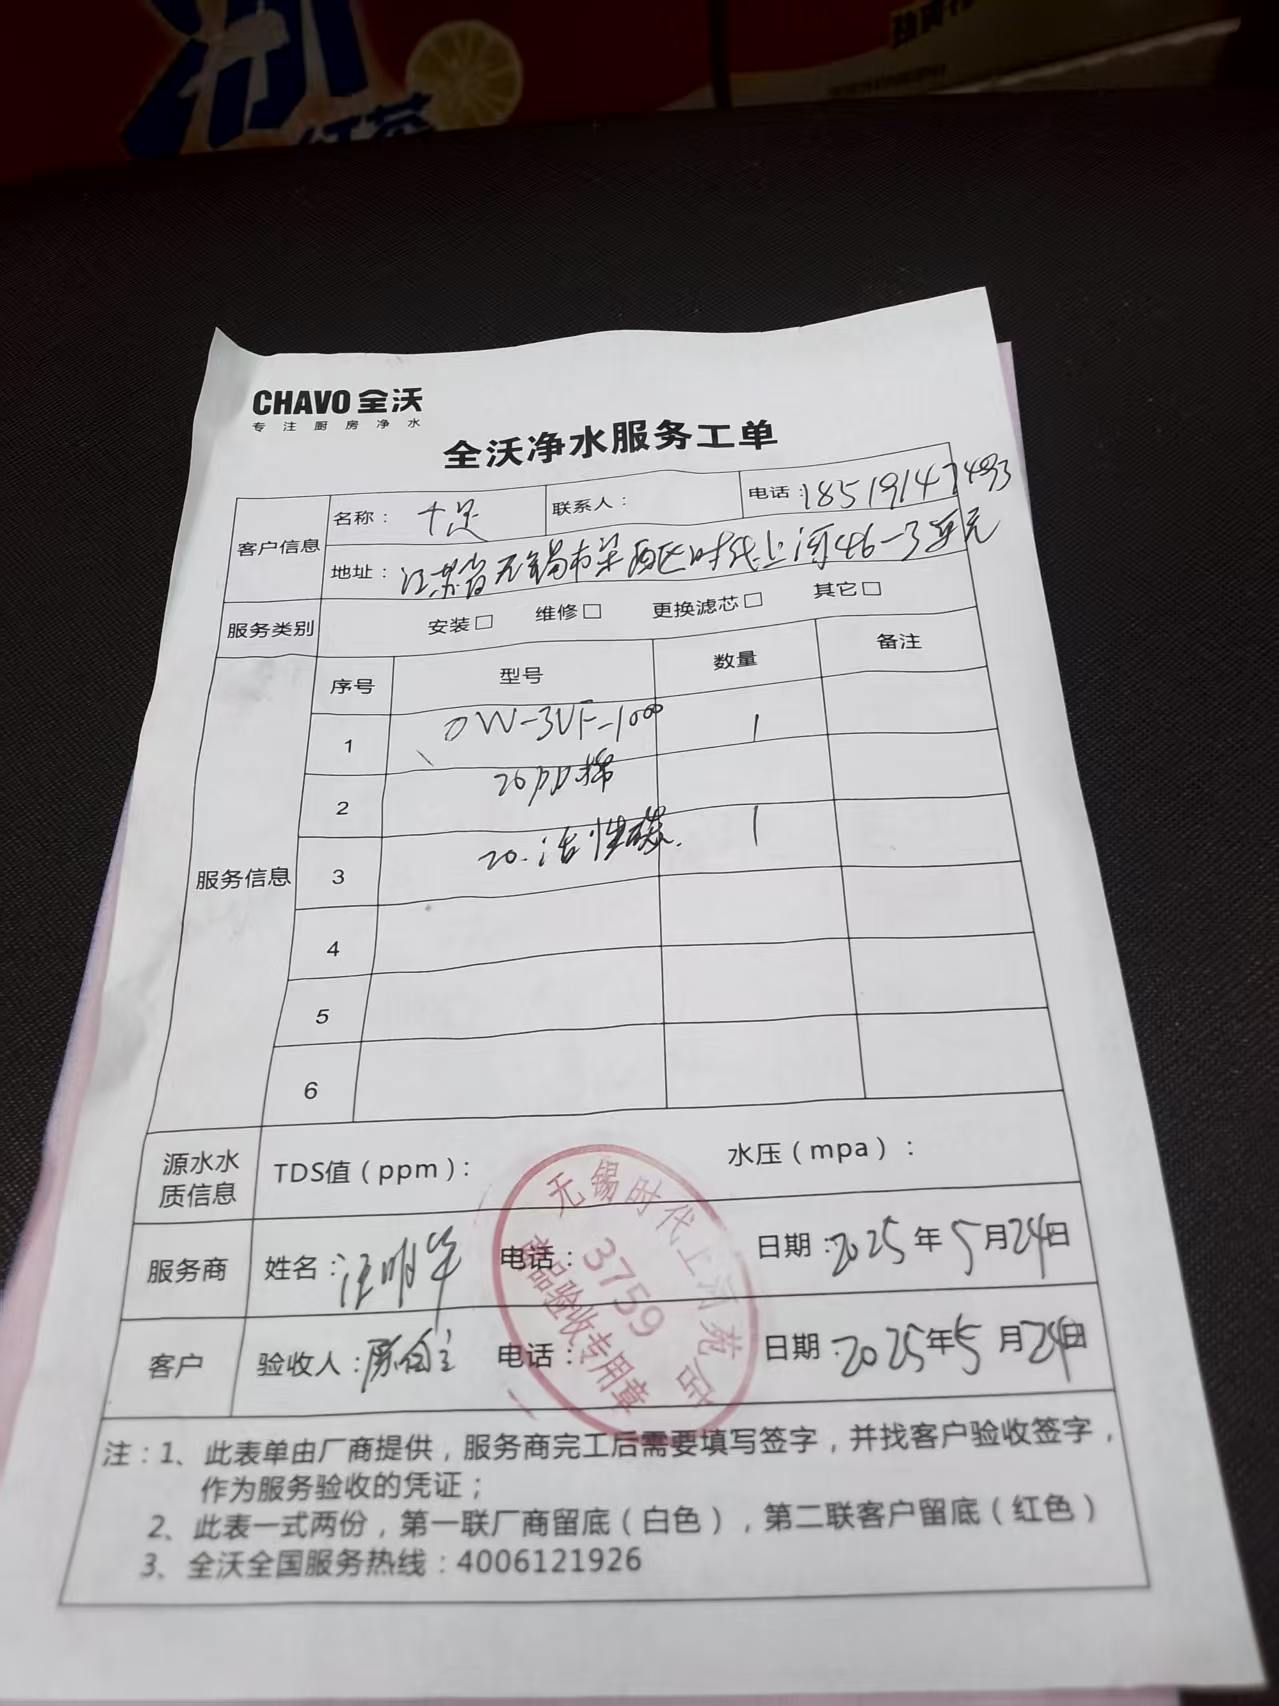 红茶
CHAVO 全沃
专注厨房净水
全沃净水服务工单
客户信息
名称： 十足 联系人： 电话：18519147493
地址：江苏省无锡市梁溪区时代上河46-3
服务类别 安装□ 维修□ 更换滤芯□ 其它□
服务信息
序号 型号 数量 备注
1 OW-3UF-1000 1
2 20PP棉
3 20.活性碳. 1
4
5
6
源水水质信息 TDS值（ppm）： 水压（mpa）：
服务商 姓名：汪明华 电话： 日期：2025年5月24日
客户 验收人： 电话： 日期：2025年5月24日
无锡时代上河苑店
3759
商品验收专用章
注：1、此表单由厂商提供，服务商完工后需要填写签字，并找客户验收签字，
作为服务验收的凭证；
2、此表一式两份，第一联厂商留底（白色），第二联客户留底（红色）
3、全沃全国服务热线：4006121926